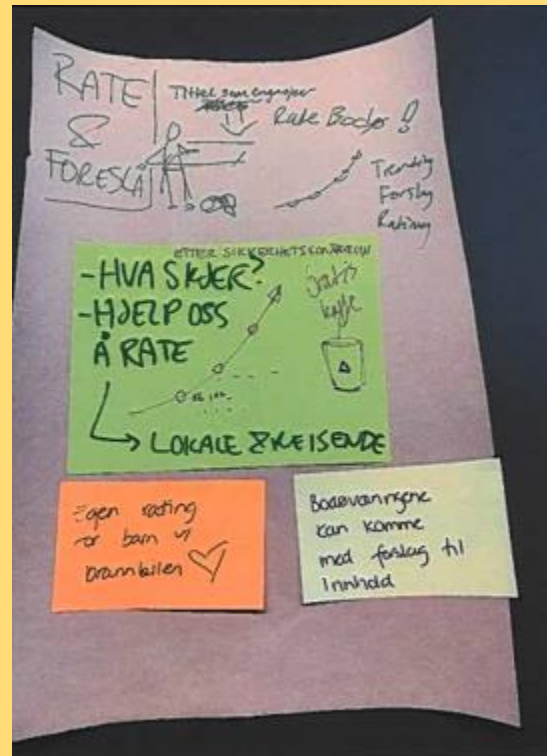 RATE
&
FORESLÅ
Tittel som engasjer
Rate Bodø!
Trending
Forslag
Rating
ETTER SIKKERHETSKONTROLLEN
-HVA SKJER?
-HJELP OSS
Å RATE
Gratis
kaffe
LOKALE & REISENDE
Egen rating
for barn v/
brannbilen
Bodøværingene
kan komme
med forslag til
Innhold